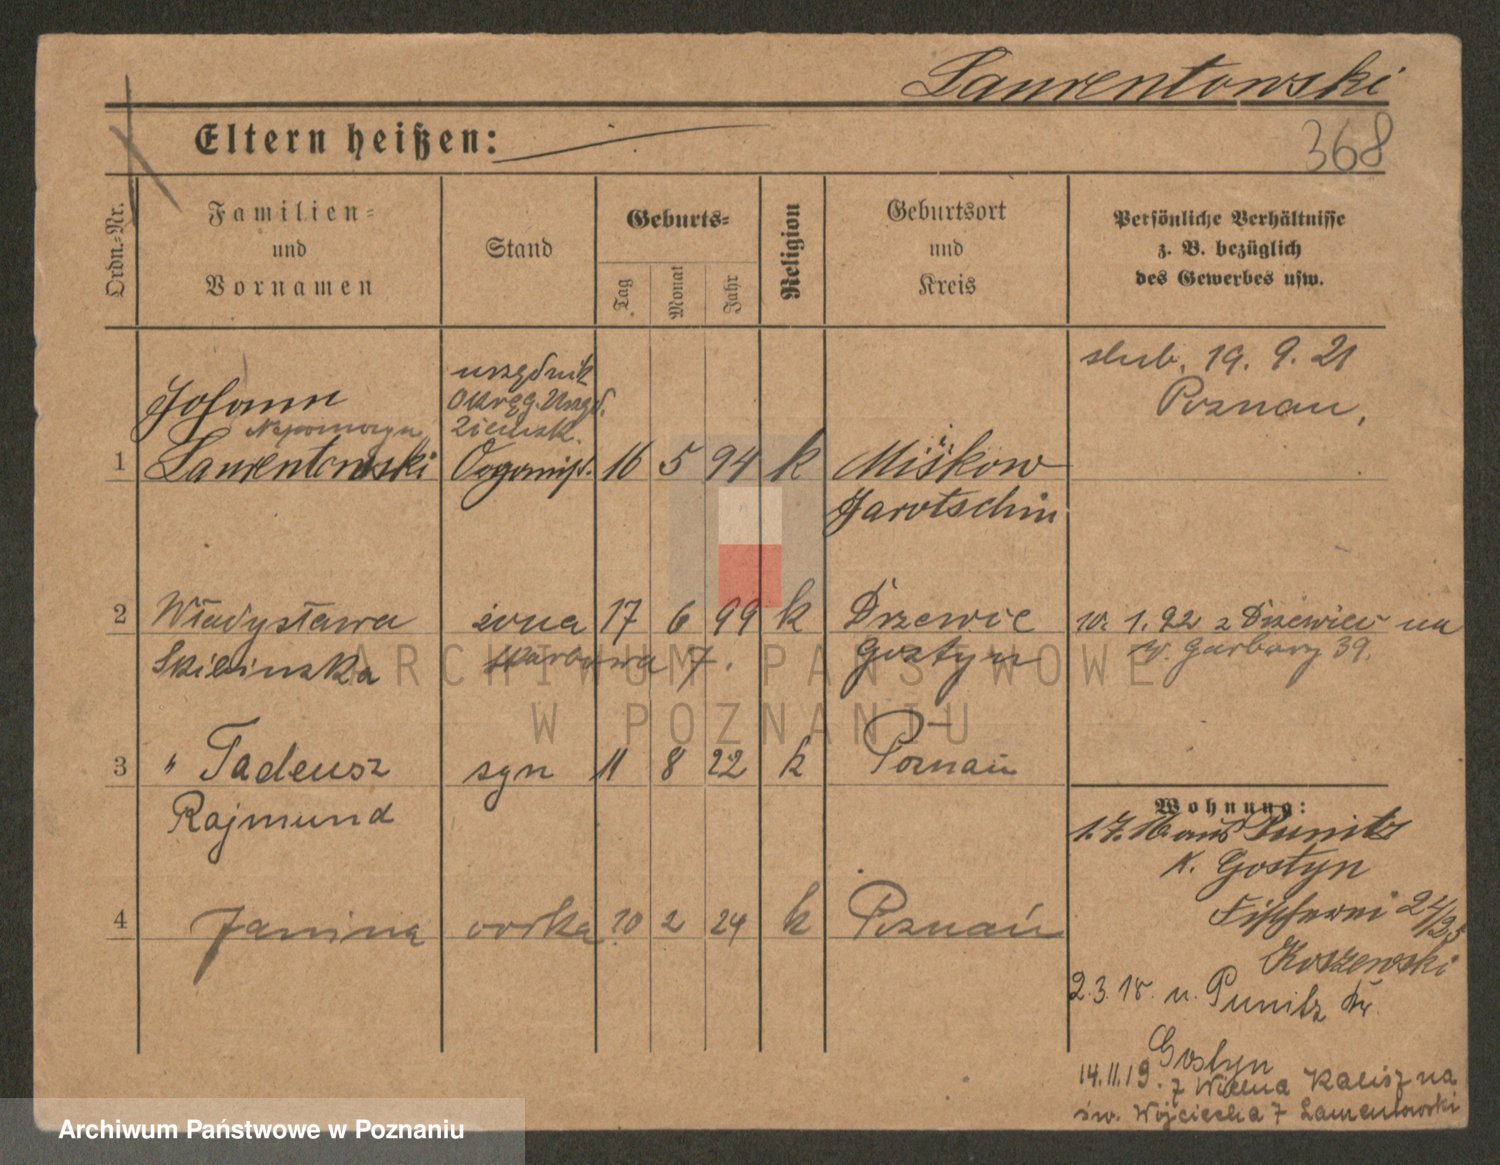 Laurentowski
Eltern heißen:
368
Ordn.-Nr.
Familien-
und
Vornamen
Stand
Geburts-
Tag
Monat
Jahr
Religion
Geburtsort
und
Kreis
Persönliche Verhältnisse
z. B. bezüglich
des Gewerbes usw.
urzędnik
Okręg. Urzęd.
Ziemsk.
ślub. 19. 9. 21
Poznań,
Johann
Nepomucyn
1 Laurentowski 16 5 94 k Miśkow
Jarotschin
2 Władysława żona 17 6 99 k Drzewce
w. 1. 22 z Drzewiec na
Skibinska Skarbowa 7. Gostyn
W. Garbary 39.
3 " Tadeusz syn 11 8 22 k Poznań
Rajmund
Wohnung:
1. 7. 16 aus Punitz
K. Gostyn
Fischerei 24/25
Koszewski
4 Janina córka 20 2 24 k Poznań
2. 3. 18. n. Punitz Kr.
Gostyn
14.11.19. z Kalisz na
św. Wojciecha 7 Laurentowski
ARCHIWUM PAŃSTWOWE
W POZNANIU
Archiwum Państwowe w Poznaniu